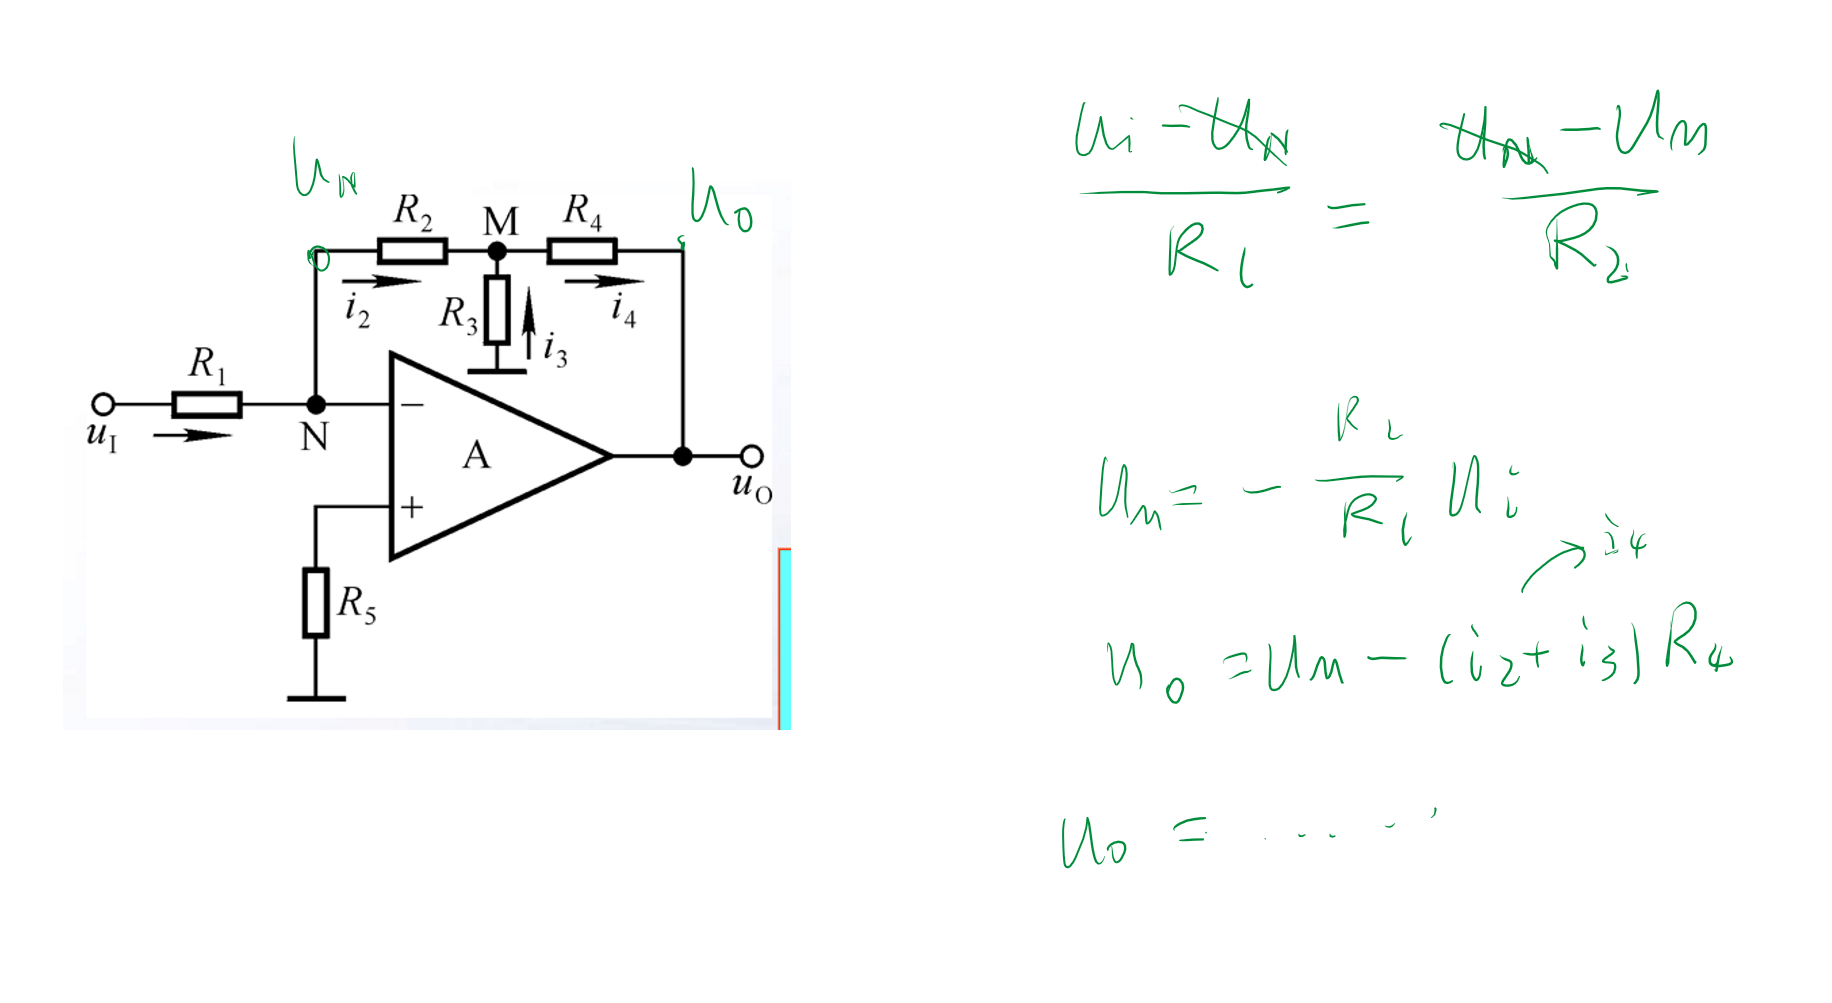 u_N
u_0
R_2 M R_4
i_2 R_3 i_3 i_4
R_1
u_I
N
−
A
+
u_O
R_5
(u_i − u_N) / R_1 = (u_N − u_M) / R_2
u_M = − (R_2 / R_1) u_i
i_4
u_0 = u_M − (i_2 + i_3) R_4
u_0 = ......